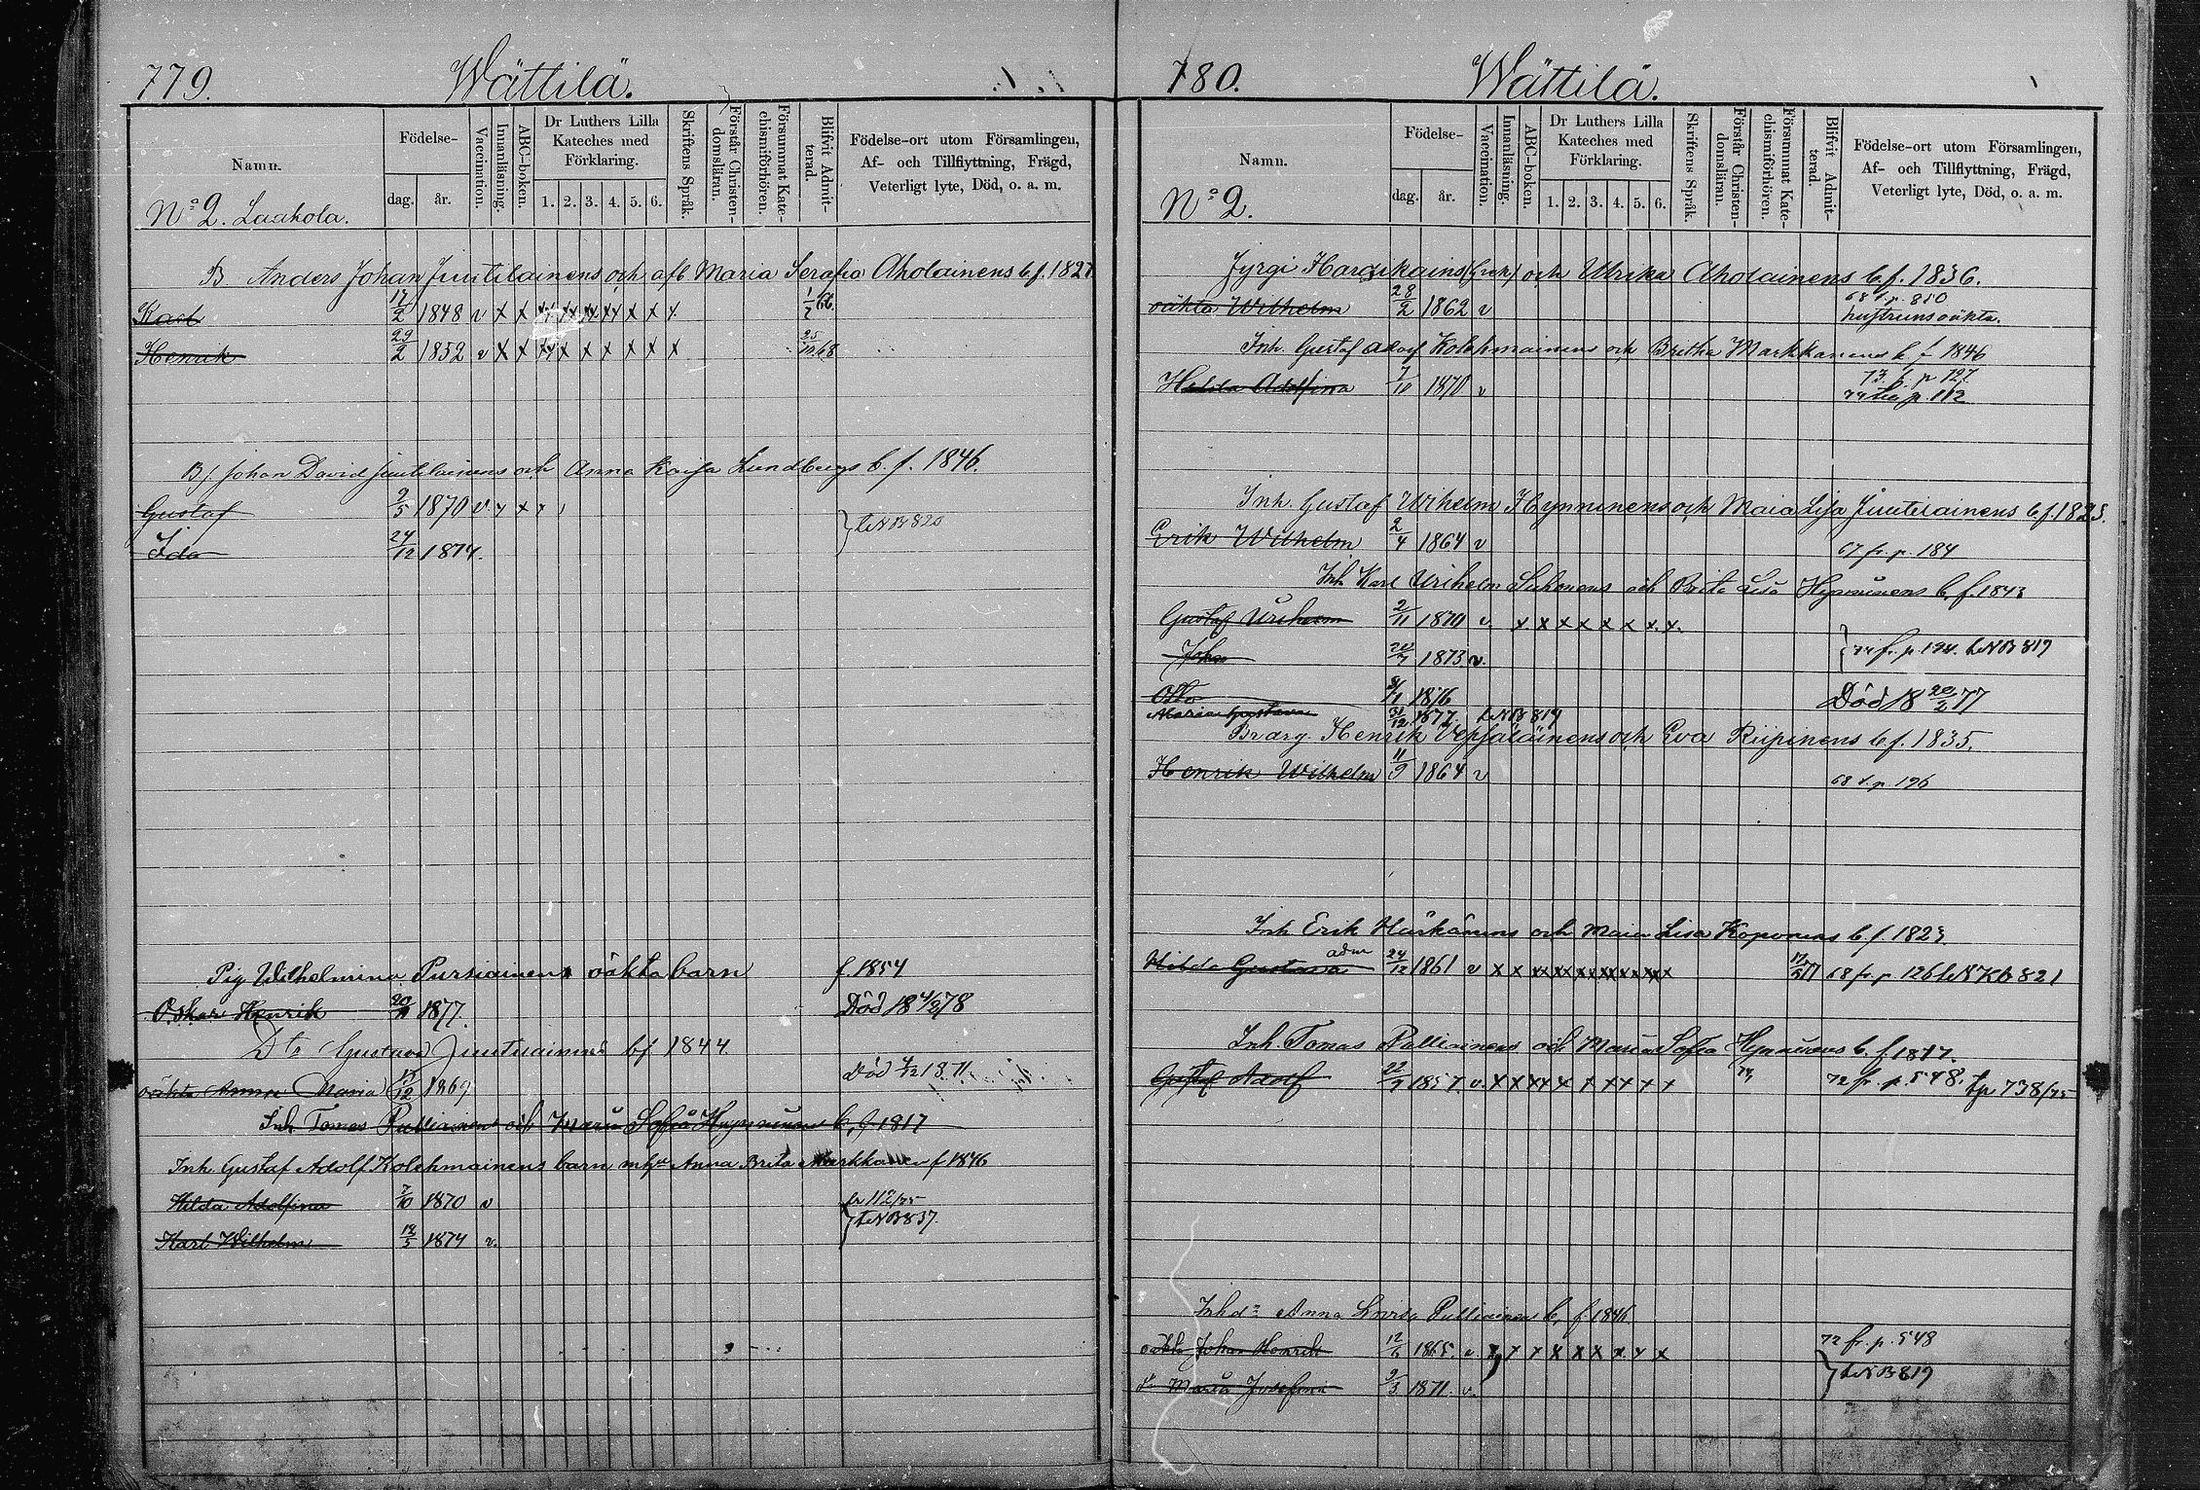 779. Wättilä.
Namn.
Födelse-
dag. år.
Vaccination.
Innanläsning.
ABC-boken.
Dr Luthers Lilla Kateches med Förklaring.
1. 2. 3. 4. 5. 6.
Skriftens Språk.
Förstår Christendomsläran.
Försummat Katechismiförhören.
Blifvit Admitterad.
Födelse-ort utom Församlingen,
Af- och Tillflyttning, Frägd,
Veterligt lyte, Död, o. a. m.
No 2. Laahola.
B. Anders Johan Juutilainens och afl. Maria Serafia Aholainens b f. 1827
Karl 17/2 1848 v x x x x x x x x x
Henrik 29/2 1852 v x x x x x x x x x 25/12 68
Bj. Johan David Juutilainens och Anna Kaisa Lundbergs b. f. 1846.
Gustaf 9/5 1870 v x x x } t. NB 820
Ida 24/12 1874.
Pig Wilhelmina Pursiainens oäkta barn f. 1854
Oskar Henrik 1877. Död 18 4/2 78
Dto Gustava Juutilainens bf 1844.
oäkta Anna Maria 15/12 1869 Död 1871
Inh. Tomas Pulliainens och Maria Sofia Hynninens b. f. 1817
Inh. Gustaf Adolf Kolehmainens barn m hu Anna Brita Markkanen f 1846
Hilda Adolfina 7/10 1870 v fr 112/75
Karl Wilhelm 18/5 1874 v. } t. NB 837.
780. Wättilä.
Namn.
Födelse-
dag. år.
Vaccination.
Innanläsning.
ABC-boken.
Dr Luthers Lilla Kateches med Förklaring.
1. 2. 3. 4. 5. 6.
Skriftens Språk.
Förstår Christendomsläran.
Försummat Katechismiförhören.
Blifvit Admitterad.
Födelse-ort utom Församlingen,
Af- och Tillflyttning, Frägd,
Veterligt lyte, Död, o. a. m.
No 2.
Jyrgi och Ulrika Aholainens b f. 1836.
oäkta Wilhelm 28/2 1862 v 68 t. p. 810 hustruns oäkta.
Inh. Gustaf Adolf Kolehmainens och Britha Markkanens b. f 1846
Hilda Adolfina 7/10 1870 v 73 f. p 127. 74 till p. 112
Inh. Gustaf Wilhelm Hynninens och Maia Lisa Juutilainens b f. 1825.
Erik Wilhelm 2/4 1864 v 67 fr. p. 184
Inh. Karl Wilhelm Suhonens och Brita Lisa Hynninens b. f. 1843
Gustaf Wilhelm 2/11 1870 v. x x x x x x x x
Johan 1873 v. } 74 fr. p. 194. t. NB 819
Otto 1876 Död 18 20/2 77
Maria Gustava 31/12 1877. t. NB 819
Henrik Vepsäläinens och Eva Riipinens b f. 1835.
Henrik Wilhelm 11/9 1864 v 68 t. p. 196
Inh. Erik Härkönens och Maia Lisa Koponens b. f. 1823.
Hilda Gustava adm 24/12 1861 v x x x x x x x x 68 fr. p 126 t. NKB 821
Inh. Tomas Pulliainens och Maria Sofia Hynninens b. f. 1817.
Gustaf Adolf 1857. v. x x x x x x x x x 72 fr. p. 548. t. p 738/75
Inhd: Anna Lovisa Pulliainens b. f. 1846
oäkta Johan Henrik 12/6 1865. v x x x x x x x x x 72 fr. p. 548
do Maria Josefina 2/3 1871. v. } t. NB 819